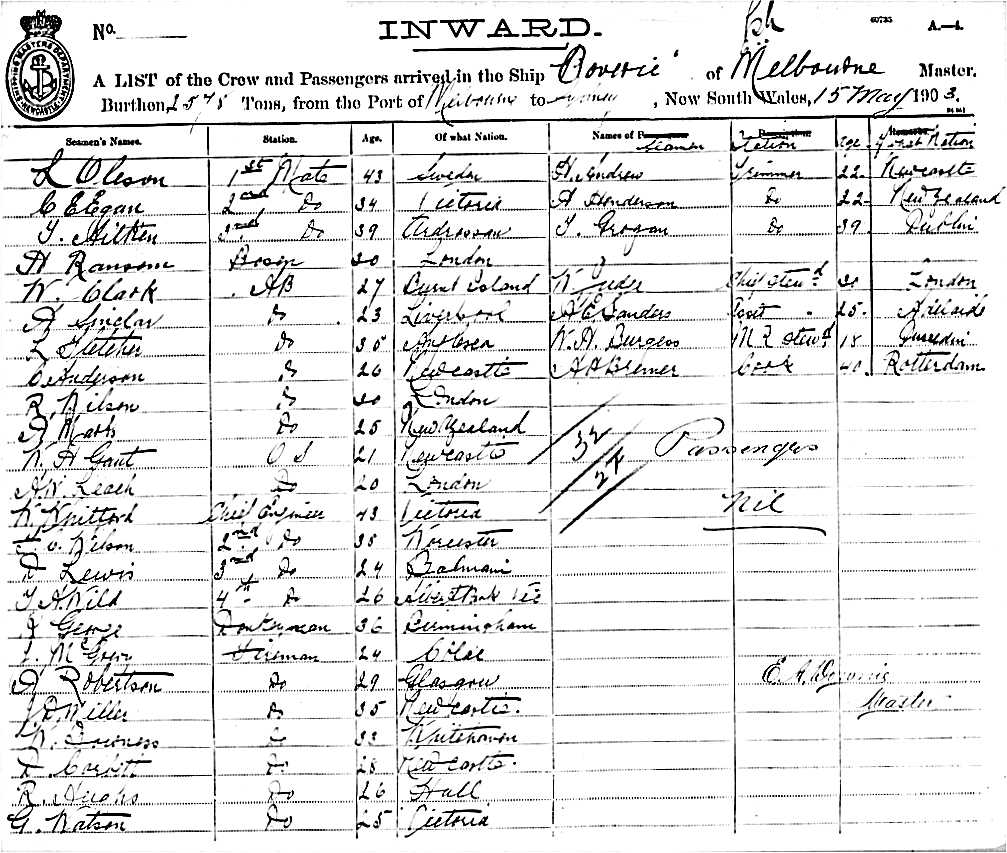 No.
INWARD.
60735 A.—4.
SHIPPING MASTERS DEPARTMENT NEWCASTLE
A LIST of the Crew and Passengers arrived in the Ship "Boveric" of Melbourne Master.
Burthen, 2578 Tons, from the Port of Melbourne to Sydney, New South Wales, 15 May 1903.
Seamen's Names. Station. Age. Of what Nation. Names of Seamen Station Age Of what Nation
L Oleson 1st Mate 43 Sweden H. Andrew Trimmer 22 Newcastle
C E Egan 2nd Do 34 Victoria A Henderson Do 22 New Zealand
T. Aitken 3rd Do 39 Ardrossan T. Grogan Do 39 Dublin
H Ransom Bosun 30 London
W. Clark AB 27 Burnt Island W. Chief Stewd 30 London
A Sinclar Do 23 Liverpool A E Sanders Asst 25 Adelaide
Fletcher Do 35 W. A. Burgess M R Stewd 18 Dunedin
C Anderson Do 26 Newcastle A A Bremer Cook 40 Rotterdam
R. Wilson Do 30 London
Mark Do 25 New Zealand
W. H Gant O S 21 Newcastle 32/24 Passengers
A W. Leach Do 20 London
Nil
W. Chief Engineer 43 Victoria
Wilson 2nd Do 38 Worcester
Lewis 3rd Do 24 Balmain
T A Wild 4th Do 26 Albert Park Vic
George Donkeyman 36 Birmingham
Fireman 24 Colac
A Robertson Do 29 Glasgow E. A.
Miller Do 35 Newcastle Master
W. Downess Do 33 Whitehaven
Corbett Do 28 Newcastle
R. Hughs Do 26 Hull
G. Watson Do 25 Victoria